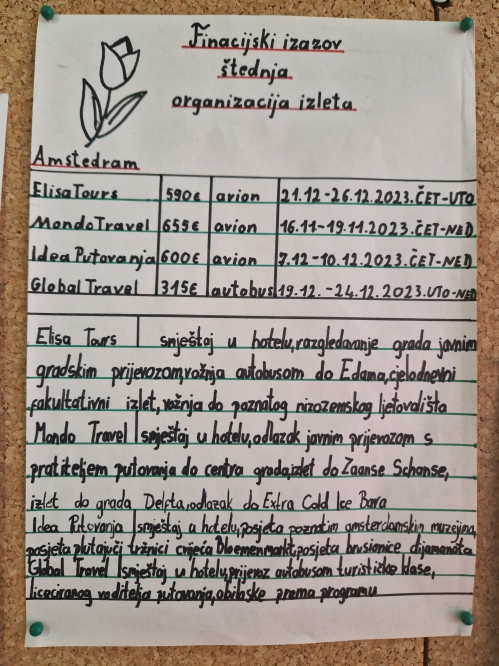 Finacijski izazov
štednja
organizacija izleta
Amstedram
Elisa Tours 590€ avion 21.12-26.12.2023. ČET-UTO
Mondo Travel 655€ avion 16.11-19.11.2023. ČET-NED
Idea Putovanja 600€ avion 7.12-10.12.2023. ČET-NED
Global Travel 315€ autobus 19.12.-24.12.2023. UTO-NED
Elisa Tours smještaj u hotelu, razgledavanje grada javnim
gradskim prijevozom, vožnja autobusom do Edama, cjelodnevni
fakultativni izlet, vožnja do poznatog nizozemskog ljetovališta
Mondo Travel smještaj u hotelu, odlazak javnim prijevozom s
pratiteljem putovanja do centra grada, izlet do Zaanse Schanse,
izlet do grada Delfta, odlazak do Extra Cold Ice Bara
Idea Putovanja smještaj u hotelu, posjeta poznatim amsterdamskim muzejima,
posjeta plutajući tržnici cvijeća Bloemenmarkt, posjeta brusionice dijamanata
Global Travel smještaj u hotelu, prijevoz autobusom turističke klase,
licenciranog voditelja putovanja, obilaske prema programu